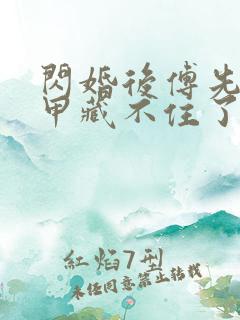 閃婚後傅先
甲藏不住了
紅焰7型
未经同意禁止转载